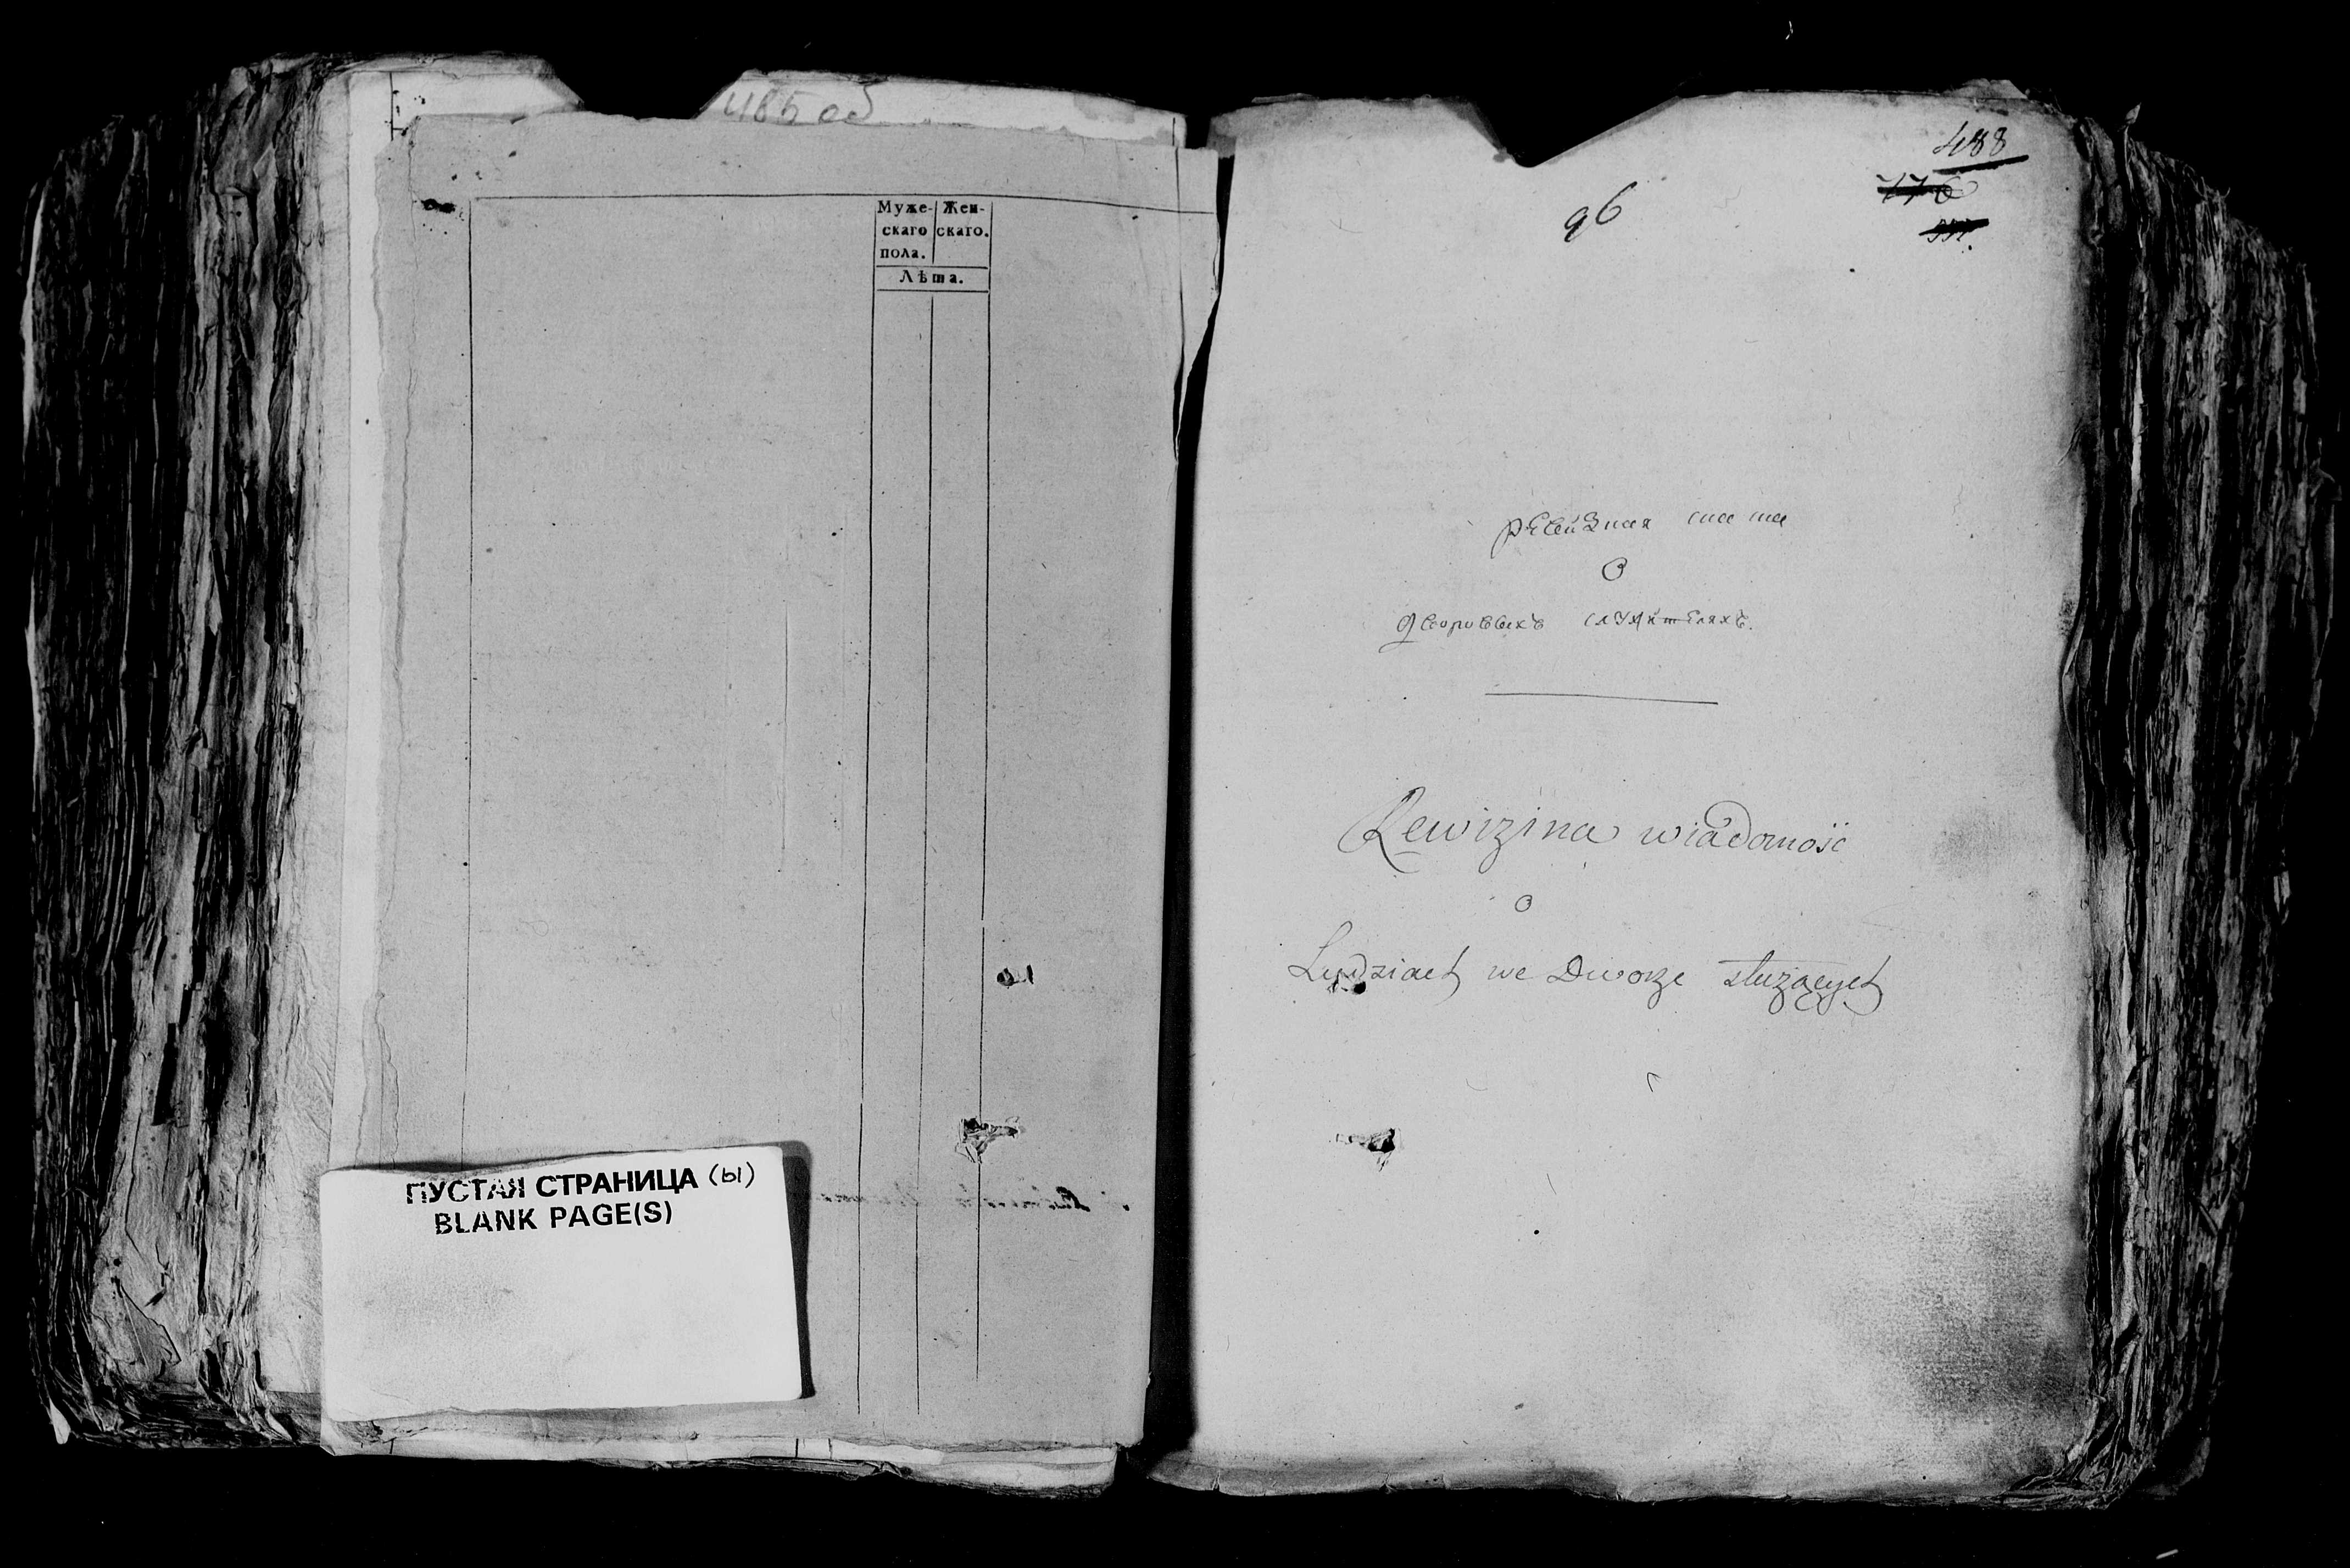 485 об
Муже- Жен-
скаго скаго.
пола.
Лѣта.
ПУСТАЯ СТРАНИЦА (Ы)
BLANK PAGE(S)
488
776
96
рѣвизная
О
дворовыхъ служителяхъ.
Rewizina wiadomość
o
Ludziach we Dworze służących